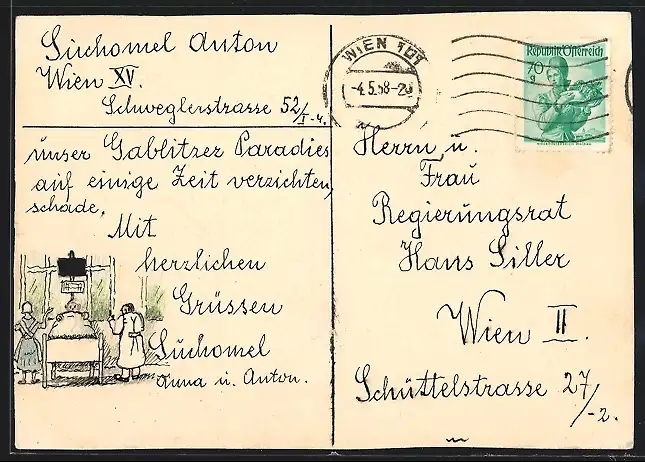 Suchomel Anton
Wien XV.
Schweglerstrasse 52/I-4.
unser Gablitzer Paradies
auf einige Zeit verzichten,
schade.
Mit
herzlichen
Grüssen
Suchomel
Anna u. Anton.
WIEN 101
-4.5.58-20
REPUBLIK ÖSTERREICH
70
g
Herrn u.
Frau
Regierungsrat
Hans Siller
Wien II.
Schüttelstrasse 27/-2.